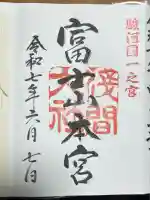 駿河国一之宮
富士山本宮
浅間大社
令和七年六月七日